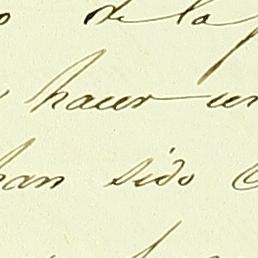 de la
hacer un
han sido